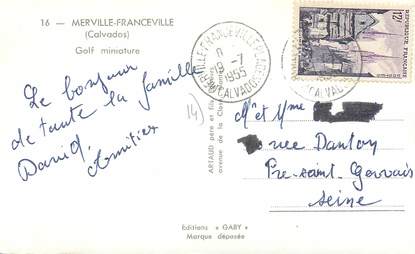 16 — MERVILLE-FRANCEVILLE
(Calvados)
Golf miniature
Le bonjour
de toute la famille
David.
Amitiés
14)
ARTAUD père et fils
avenue de la Close
Editions « GABY »
Marque déposée
MERVILLE-FRANCEVILLE-PLAGE
19 -7
1955
CALVADOS
CALVADOS
12F
REPUBLIQUE FRANÇAISE
Mr et Mme
rue Danton
Pré-saint-Gervais
Seine